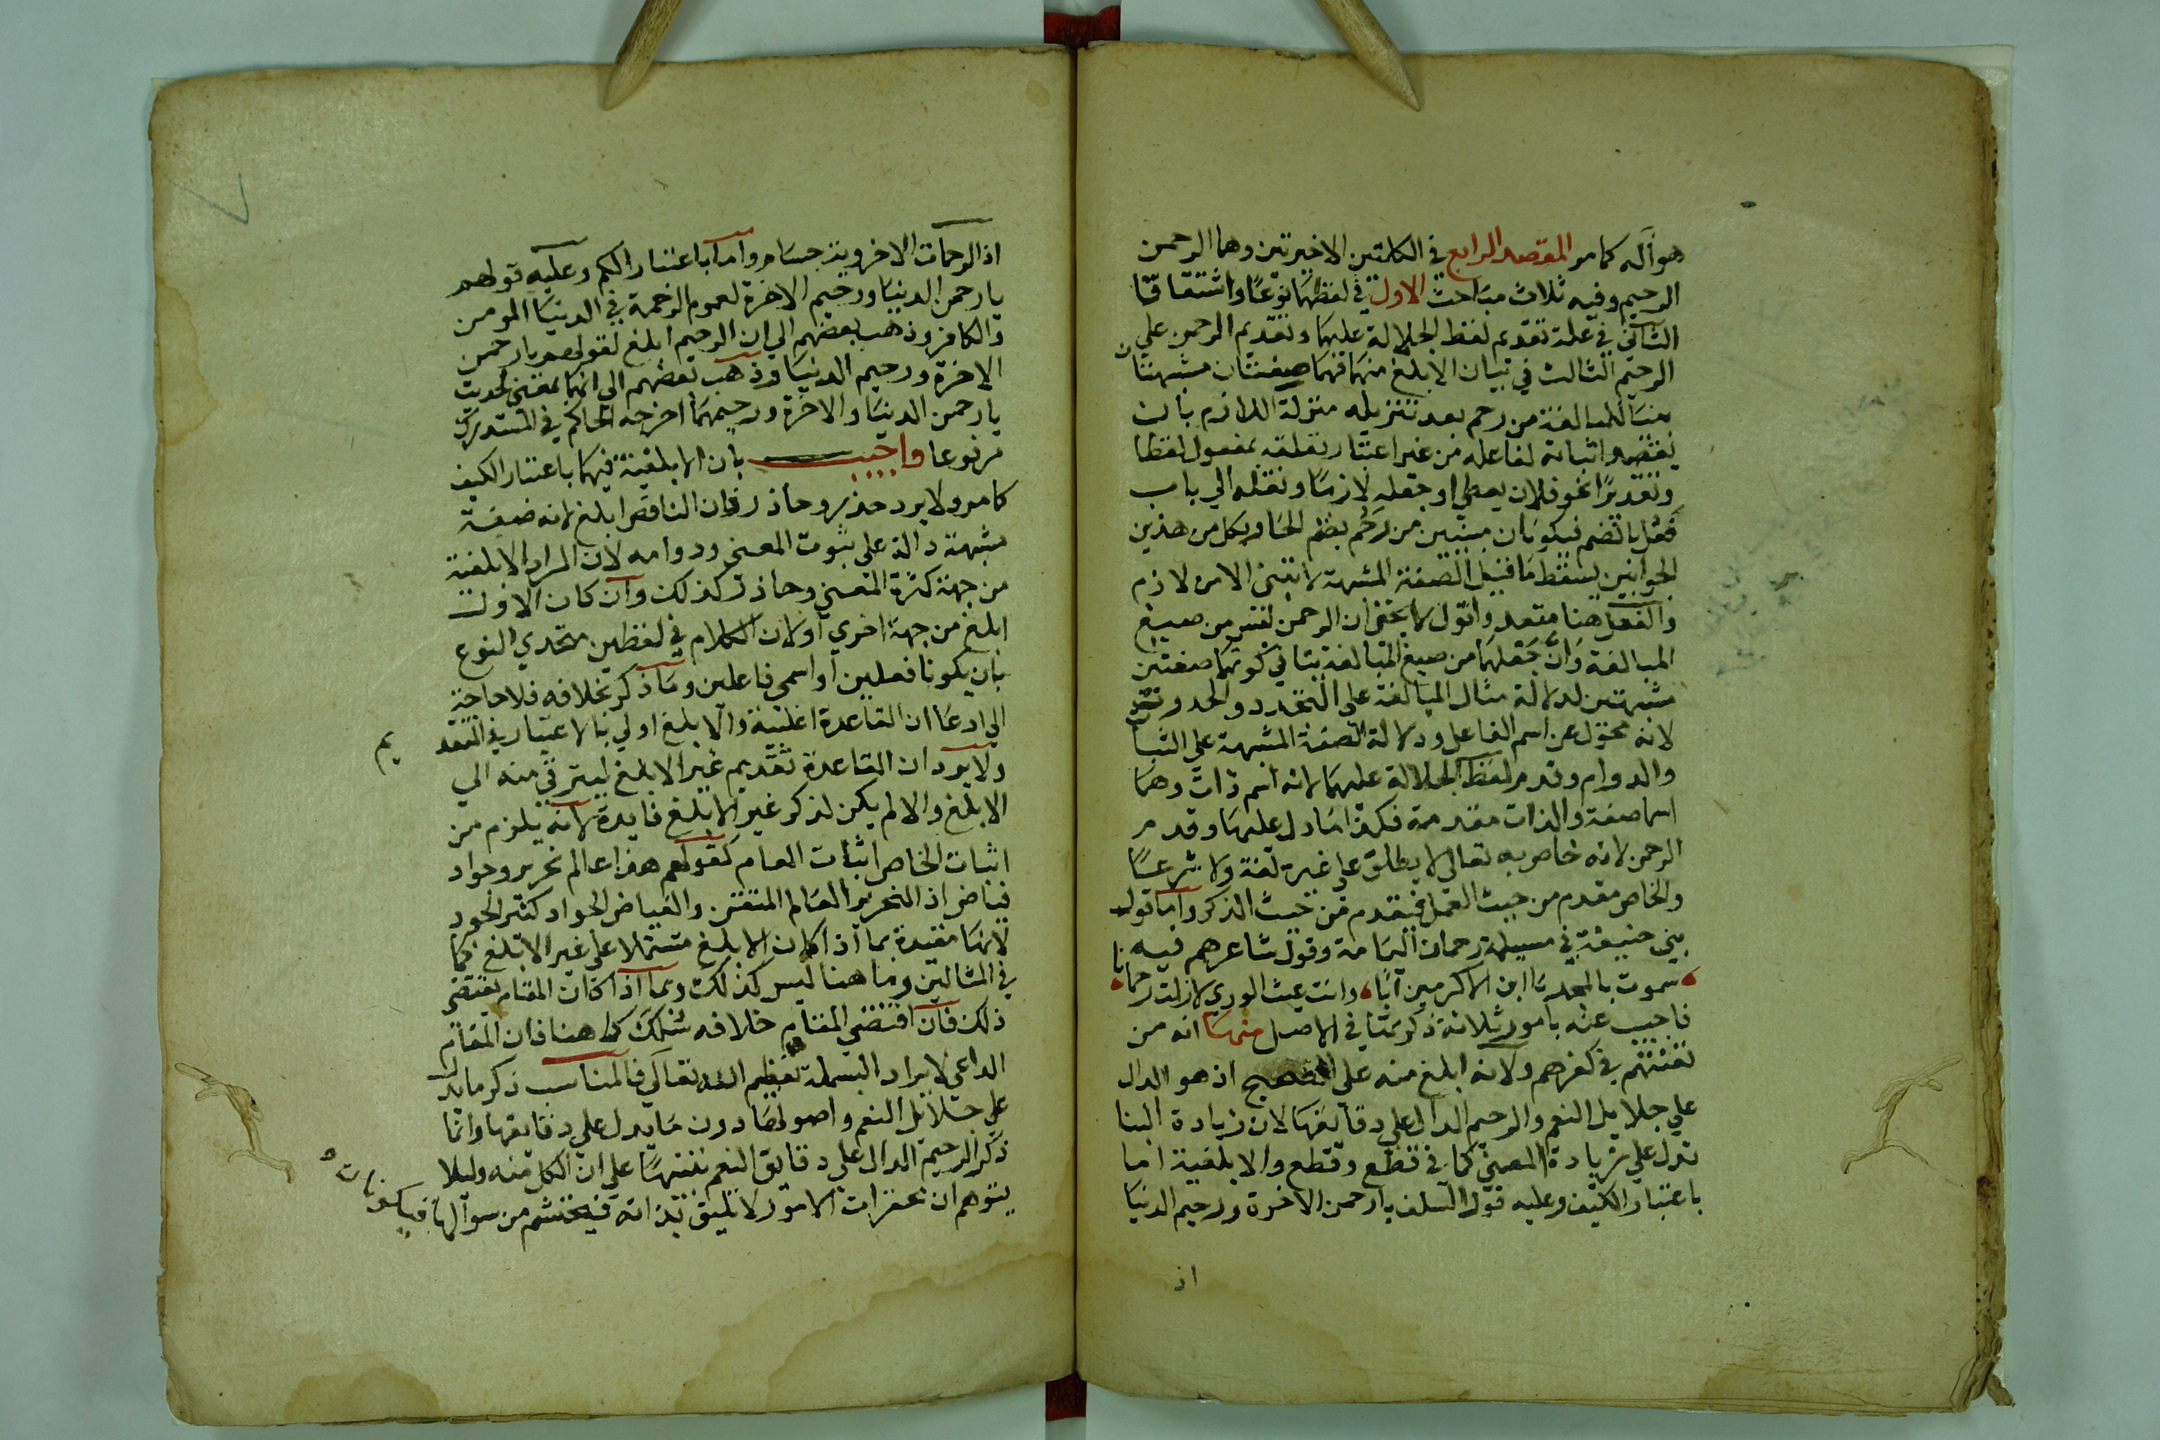 هو اله كما مر المقصد الرابع في الكلمتين الاخيرتين وهما الرحمن
الرحيم وفيه ثلاث مباحث الاول في لفظهما نوعا واشتقاقا
الثاني في علة تقديم لفظ الجلالة عليهما وتقديم الرحمن علي
الرحيم الثالث في بيان الابلغ منهما فهما صفتان مشبهتان
بنيتا للمبالغة من رحم بعد تنزيله منزلة اللازم بان
يقصد اثباته لفاعله من غير اعتبار تعلقه بمفعول لفظا
وتقديرا نحو فلان يعطي او جعله لازما ونقله الي باب
فعل بالضم فيكونان مبنيين من رحم بضم الحا وبكل من هذين
الجوابين يسقط ما قيل الصفة المشبهة لا تبني الا من لازم
والفعل هنا متعد واقول لا يخفي ان الرحمن ليس من صيغ
المبالغة وان جعلهما من صيغ المبالغة ينافي كونهما صفتين
مشبهتين لدلالة مثال المبالغة علي التجدد والحدوث
لانه محول عن اسم الفاعل ودلالة الصفة المشبهة علي الثبات
والدوام وقدم لفظ الجلالة عليهما لانه اسم ذات وهما
اسما صفة والذات مقدمة فكذا ما دل عليها وقدم
الرحمن لانه خاص به تعالي لا يطلق علي غيره لغة ولا شرعا
والخاص مقدم من حيث العمل فيقدم من حيث الذكر واما قول
بني حنيفة في مسيلمة رحمان اليمامة وقول شاعرهم فيه
سموت بالمجد يا ابن الاكرمين ابا وانت غيث الوري لا زلت رحمانا
فاجيب عنه بامور ثلاثة ذكرتها في الاصل منها انه من
تعنتهم في كفرهم ولانه ابلغ منه علي الصحيح اذ هو الدال
علي جلايل النعم والرحيم الدال علي دقايقها لان زيادة البنا
تدل علي زيادة المعني كما في قطع وقطع والابلغية اما
باعتبار الكيف وعليه قول السلف يا رحمن الاخرة ورحيم الدنيا
اذ
اذ الرحمات الاخروية جسام واما باعتبار الكم وعليه قولهم
يا رحمن الدنيا ورحيم الاخرة لعموم الرحمة في الدنيا المومن
والكافر وذهب بعضهم الي ان الرحيم ابلغ لقولهم يا رحمن
الاخرة ورحيم الدنيا وذهب بعضهم الي انهما بمعني لحديث
يا رحمن الدنيا والاخرة ورحيمهما اخرجه الحاكم في المستدرك
مرفوعا واجيب بان الابلغية فيهما باعتبار الكيف
كما مر ولا يرد حذر وحاذر فان الناقص ابلغ لانه صفة
مشبهة دالة علي ثبوت المعني ودوامه لان المراد الابلغية
من جهة كثرة المعني وحاذر كذلك وان كان الاول
ابلغ من جهة اخري او لان الكلام في لفظين متحدي النوع
بان يكونا فعلين او اسمي فاعلين وما ذكر بخلافه فلا حاجة
الي ادعا ان القاعدة اغلبية والابلغ اولي بالاعتبار في التقديم
ولا يرد ان القاعدة تقديم غير الابلغ ليترقي منه الي
الابلغ والا لم يكن لذكر غير الابلغ فايدة لانه يلزم من
اثبات الخاص اثبات العام كقولهم هذا عالم نحرير وجواد
فياض اذ النحرير العالم المتقن والفياض الجواد كثير الجود
لانها مقيدة بما اذا كان الابلغ مشتملا علي غير الابلغ كما
في المثالين وما هنا ليس كذلك وبما اذا كان المقام يقتضي
ذلك فان اقتضي المقام خلافه سلك كما هنا فان المقام
الداعي لايراد البسملة تعظيم الله تعالي فالمناسب ذكر ما يدل
علي جلايل النعم واصولها دون ما يدل علي دقايقها وانما
ذكر الرحيم الدال علي دقايق النعم تنبيها علي ان الكل منه وليلا
يتوهم ان محقرات الامور لا تليق بذاته فيحتشم من سوالها فيكونا